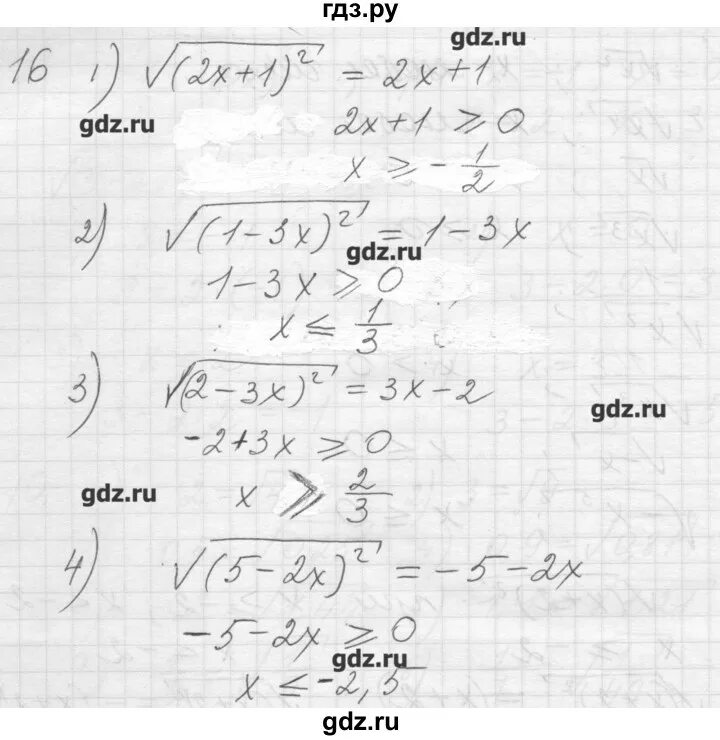 гдз.ру
gdz.ru
16 1) √(2x+1)² = 2x+1
gdz.ru
2x+1 ⩾ 0
x ⩾ -1/2
2) √(1-3x)² = 1-3x
gdz.ru
1-3x ⩾ 0
x ≤ 1/3
3) √(2-3x)² = 3x-2
gdz.ru
-2+3x ⩾ 0
gdz.ru
x ⩾ 2/3
4) √(5-2x)² = -5-2x
-5-2x ⩾ 0
gdz.ru
x ≤ -2,5
gdz.ru